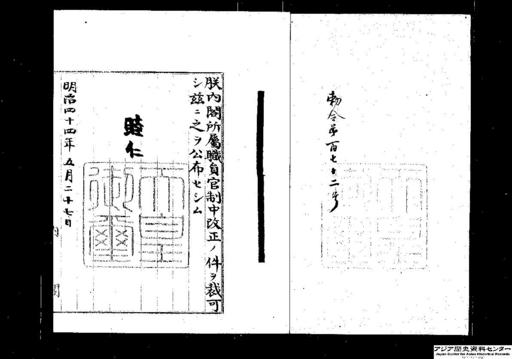 勅令第百七十二号
朕内閣所属職員官制中改正ノ件ヲ裁可
シ玆ニ之ヲ公布セシム
睦仁
天皇御璽
明治四十四年五月二十七日
内閣
アジア歴史資料センター
Japan Center for Asian Historical Records